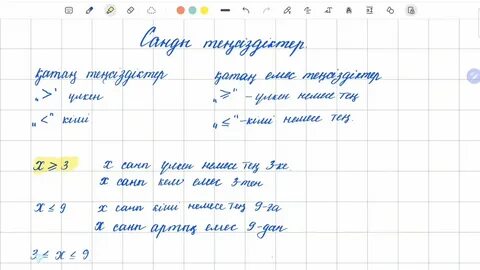 Санды теңсіздіктер
қатаң теңсіздіктер қатаң емес теңсіздіктер
„>" үлкен „≥" - үлкен немесе тең
„<" кіші „≤" - кіші немесе тең.
x ⩾ 3 x саны үлкен немесе тең 3-ке
x саны кем емес 3-тен
x ≤ 9 x саны кіші немесе тең 9-ға
x саны артық емес 9-дан
3 ≤ x ≤ 9